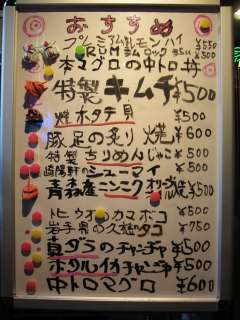 おすすめ
プレミアム生レモンハイ ¥550
RUMラムロック ¥500
本マグロの中トロ丼
特製キムチ¥500
焼ホタテ貝 ¥500
豚足の炙り焼 ¥600
特製ちりめんじゃこ ¥500
崎陽軒シューマイ ¥500
青森産ニンニクオリーブ焼¥500
トビウオのカマボコ ¥500
岩手県の久慈タコ ¥750
真ダラのチャンヂャ ¥500
ホタルイカチャンヂャ ¥500
中トロマグロ ¥600